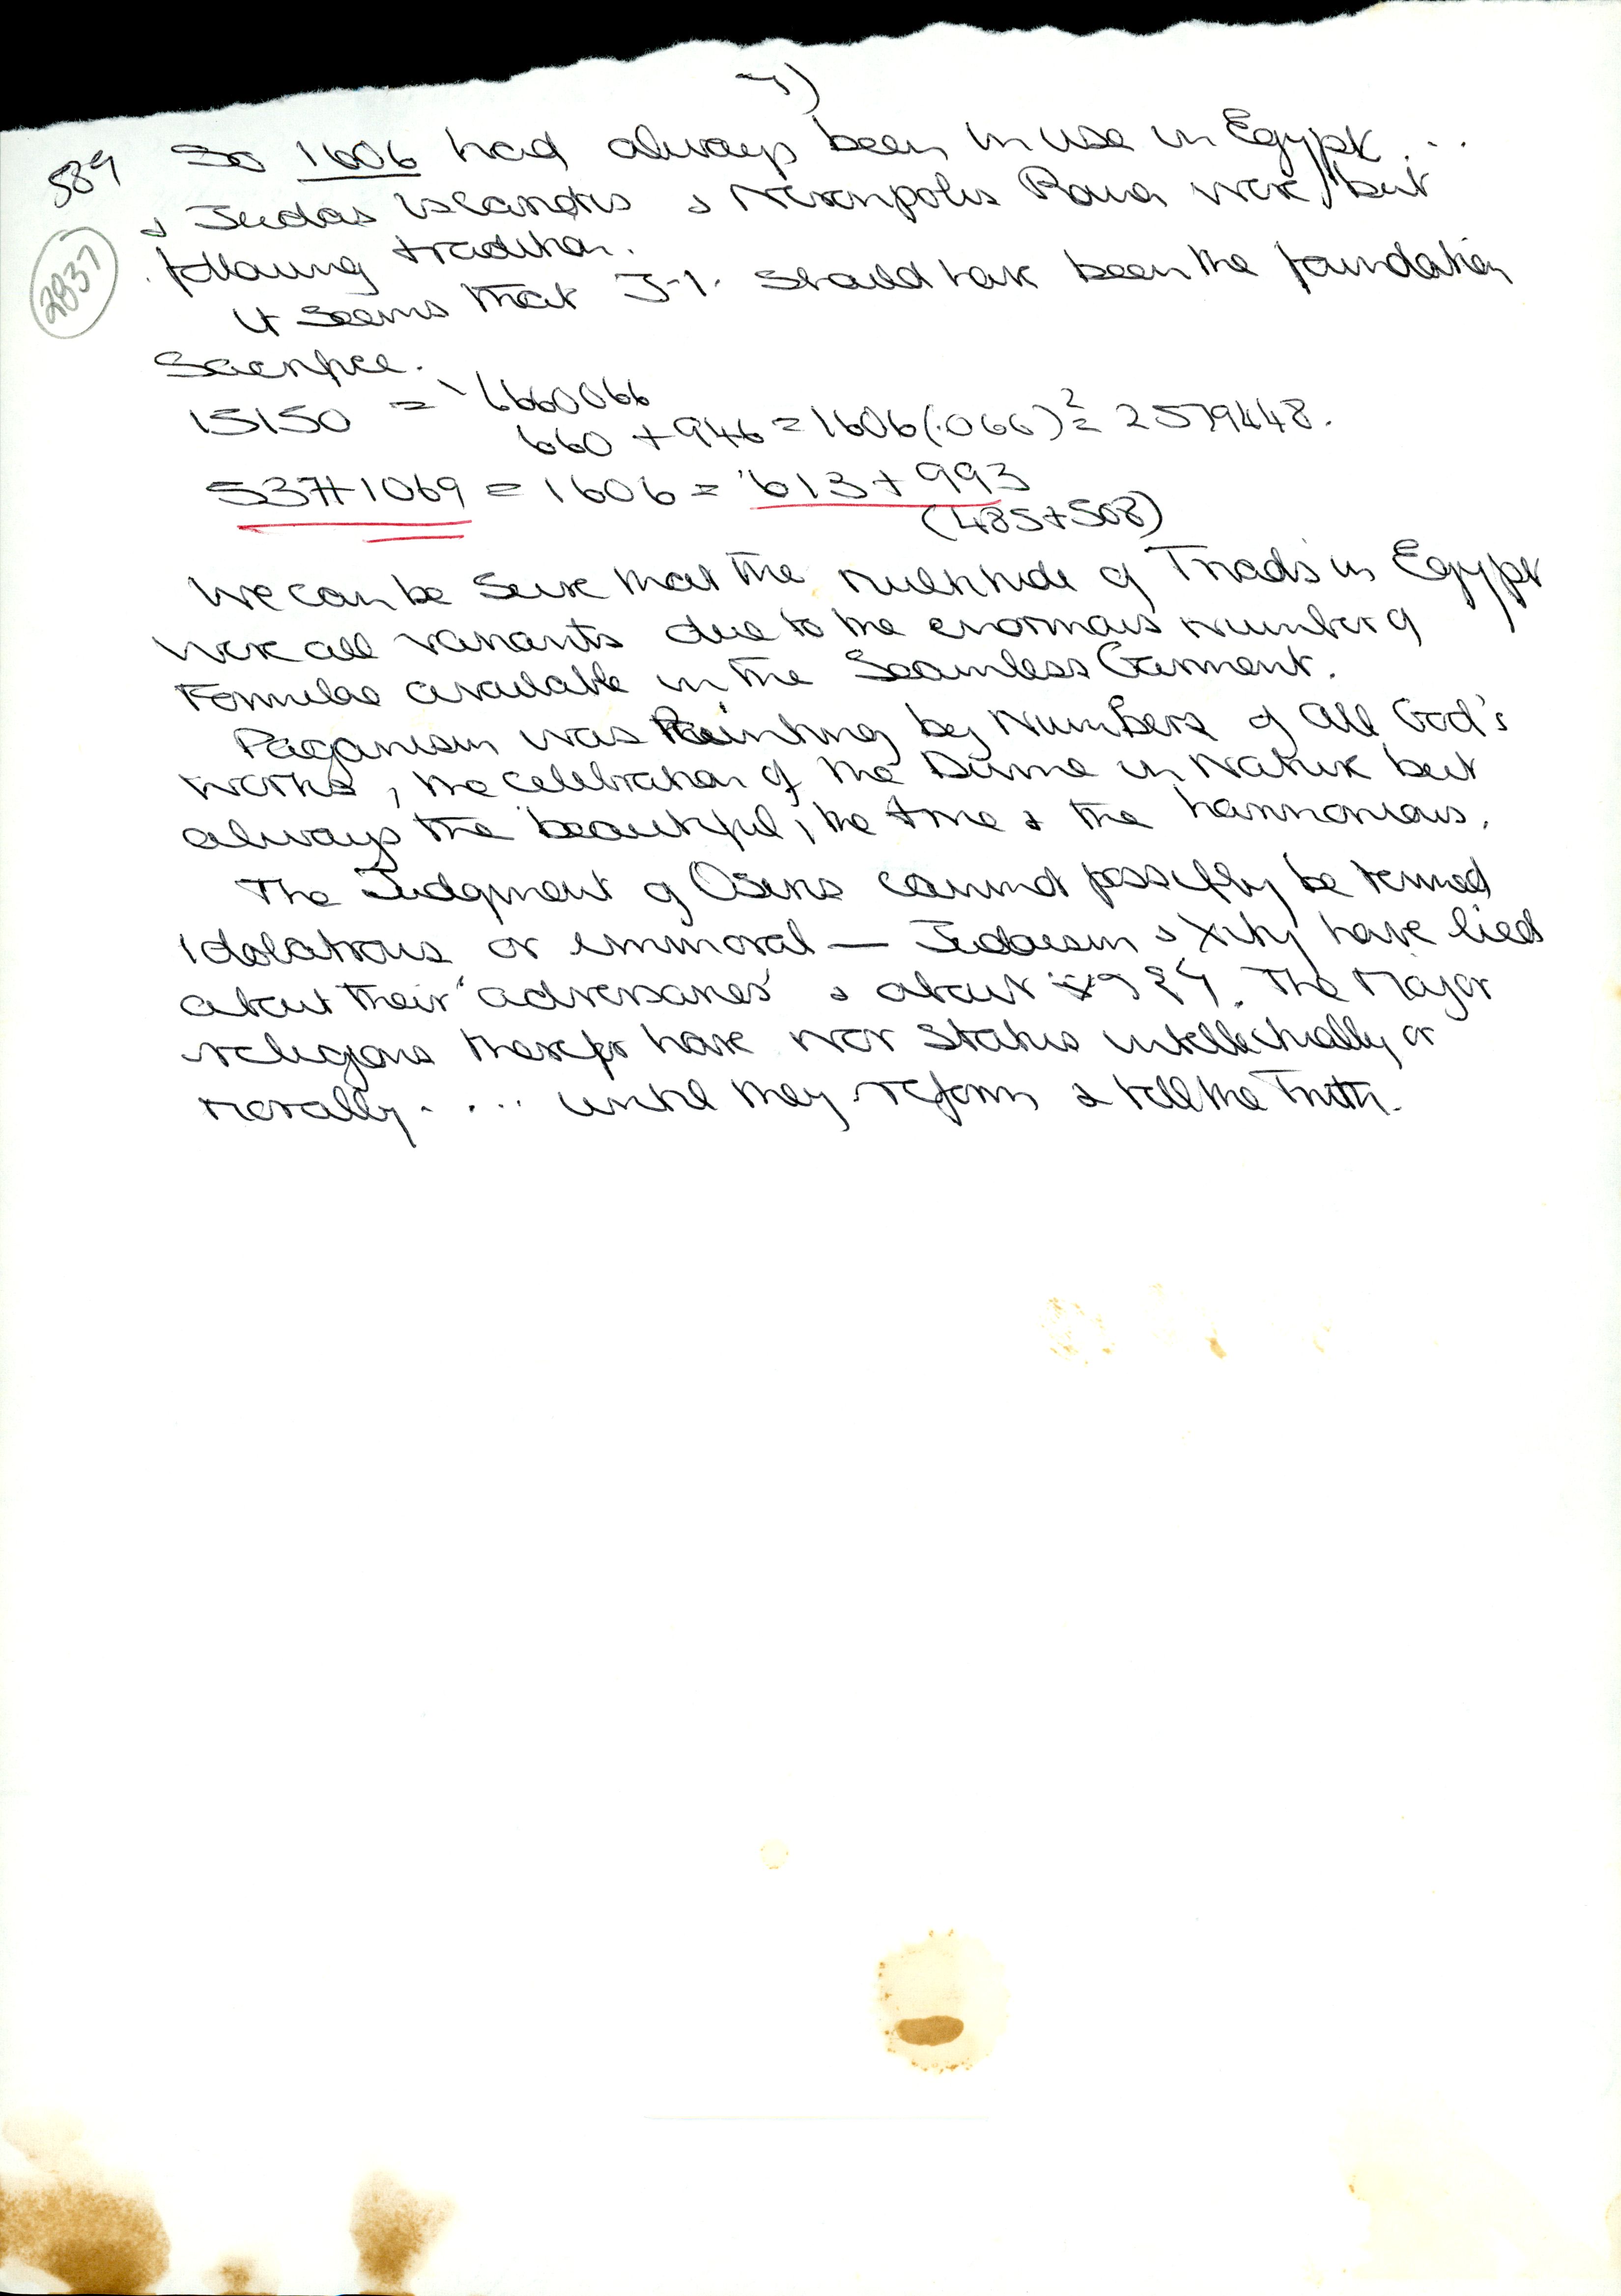 7)
589 So 1606 had always been in use in Egypt ...
& Judas Iscariotis & Neronpolis Roma were but
following tradition.
2837
It seems that J-1. should have been the foundation
Sacrifice.
15150 = '6660066
660 + 946 = 1606(.066)² = 2579448.
537+1069 = 1606 = '613 + 993
(485+508)
We can be sure that the multitude of Triads in Egypt
were all variants due to the enormous number of
Formulae available in the Seamless Garment.
Paganism was Painting by Numbers of all God's
works, the celebration of the Divine in Nature but
always the beautiful, the true & the harmonious.
The Judgment of Osiris cannot possibly be termed
idolatrous or immoral — Judaism & Xity have lied
about their 'adversaries' & about The Major
religions therefor have nor status intellectually or
morally. ... until they reform & tell the Truth.